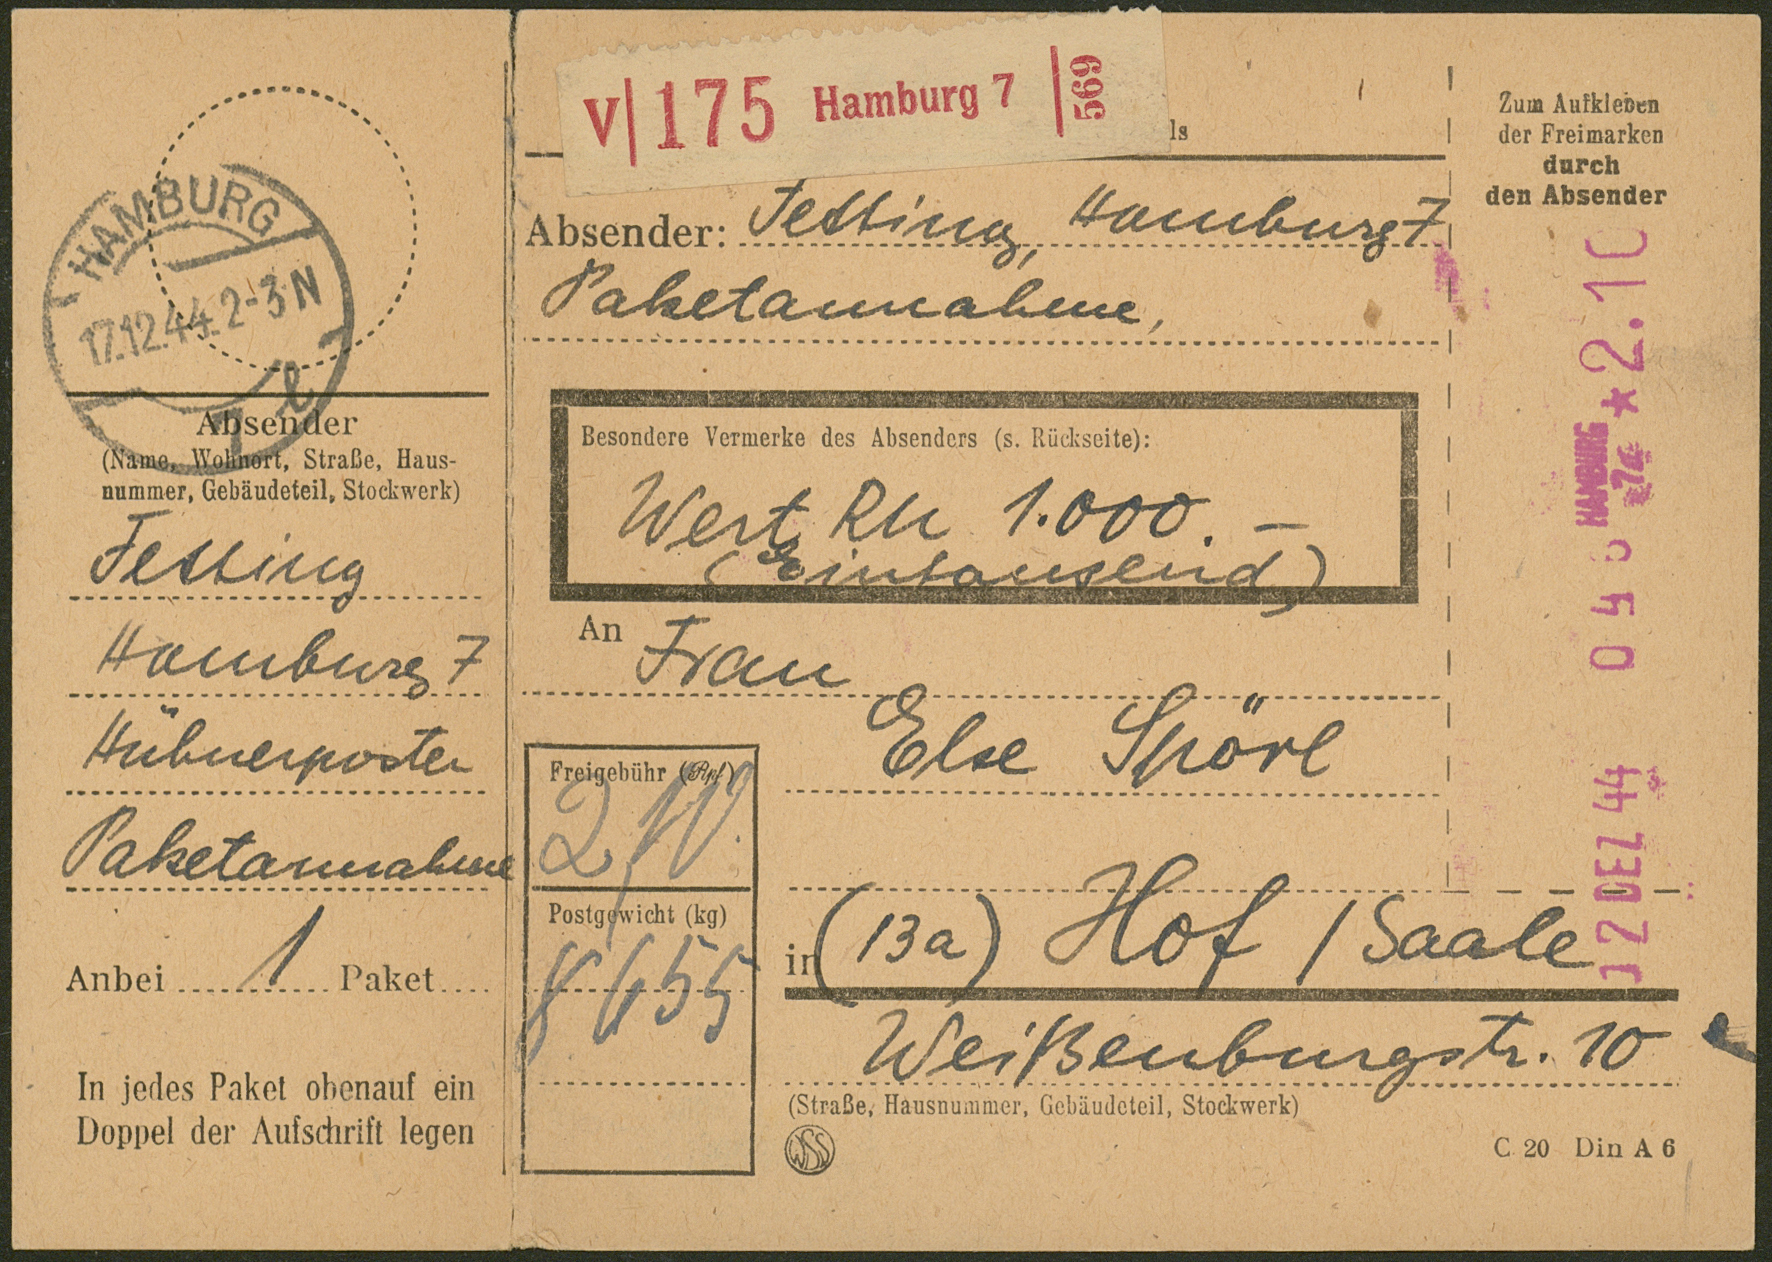 HAMBURG
17.12.44.2-3 N
7 l
Absender
(Name, Wohnort, Straße, Haus-
nummer, Gebäudeteil, Stockwerk)
Fetting
Hamburg 7
Hübnerposten
Paketannahme
Anbei 1 Paket
In jedes Paket obenauf ein
Doppel der Aufschrift legen
V 175 Hamburg 7 569
ls
Absender: Fetting, Hamburg 7
Paketannahme,
Besondere Vermerke des Absenders (s. Rückseite):
Wert RM 1.000.–
(Eintausend)
An Frau
Else Spörl
Freigebühr (Rpf)
2,10.
Postgewicht (kg)
in (13a) Hof / Saale
Weißenburgstr. 10
(Straße, Hausnummer, Gebäudeteil, Stockwerk)
WSS
C 20 Din A 6
Zum Aufkleben
der Freimarken
durch
den Absender
12 DEZ 44
HAMBURG
7a
* 2.10